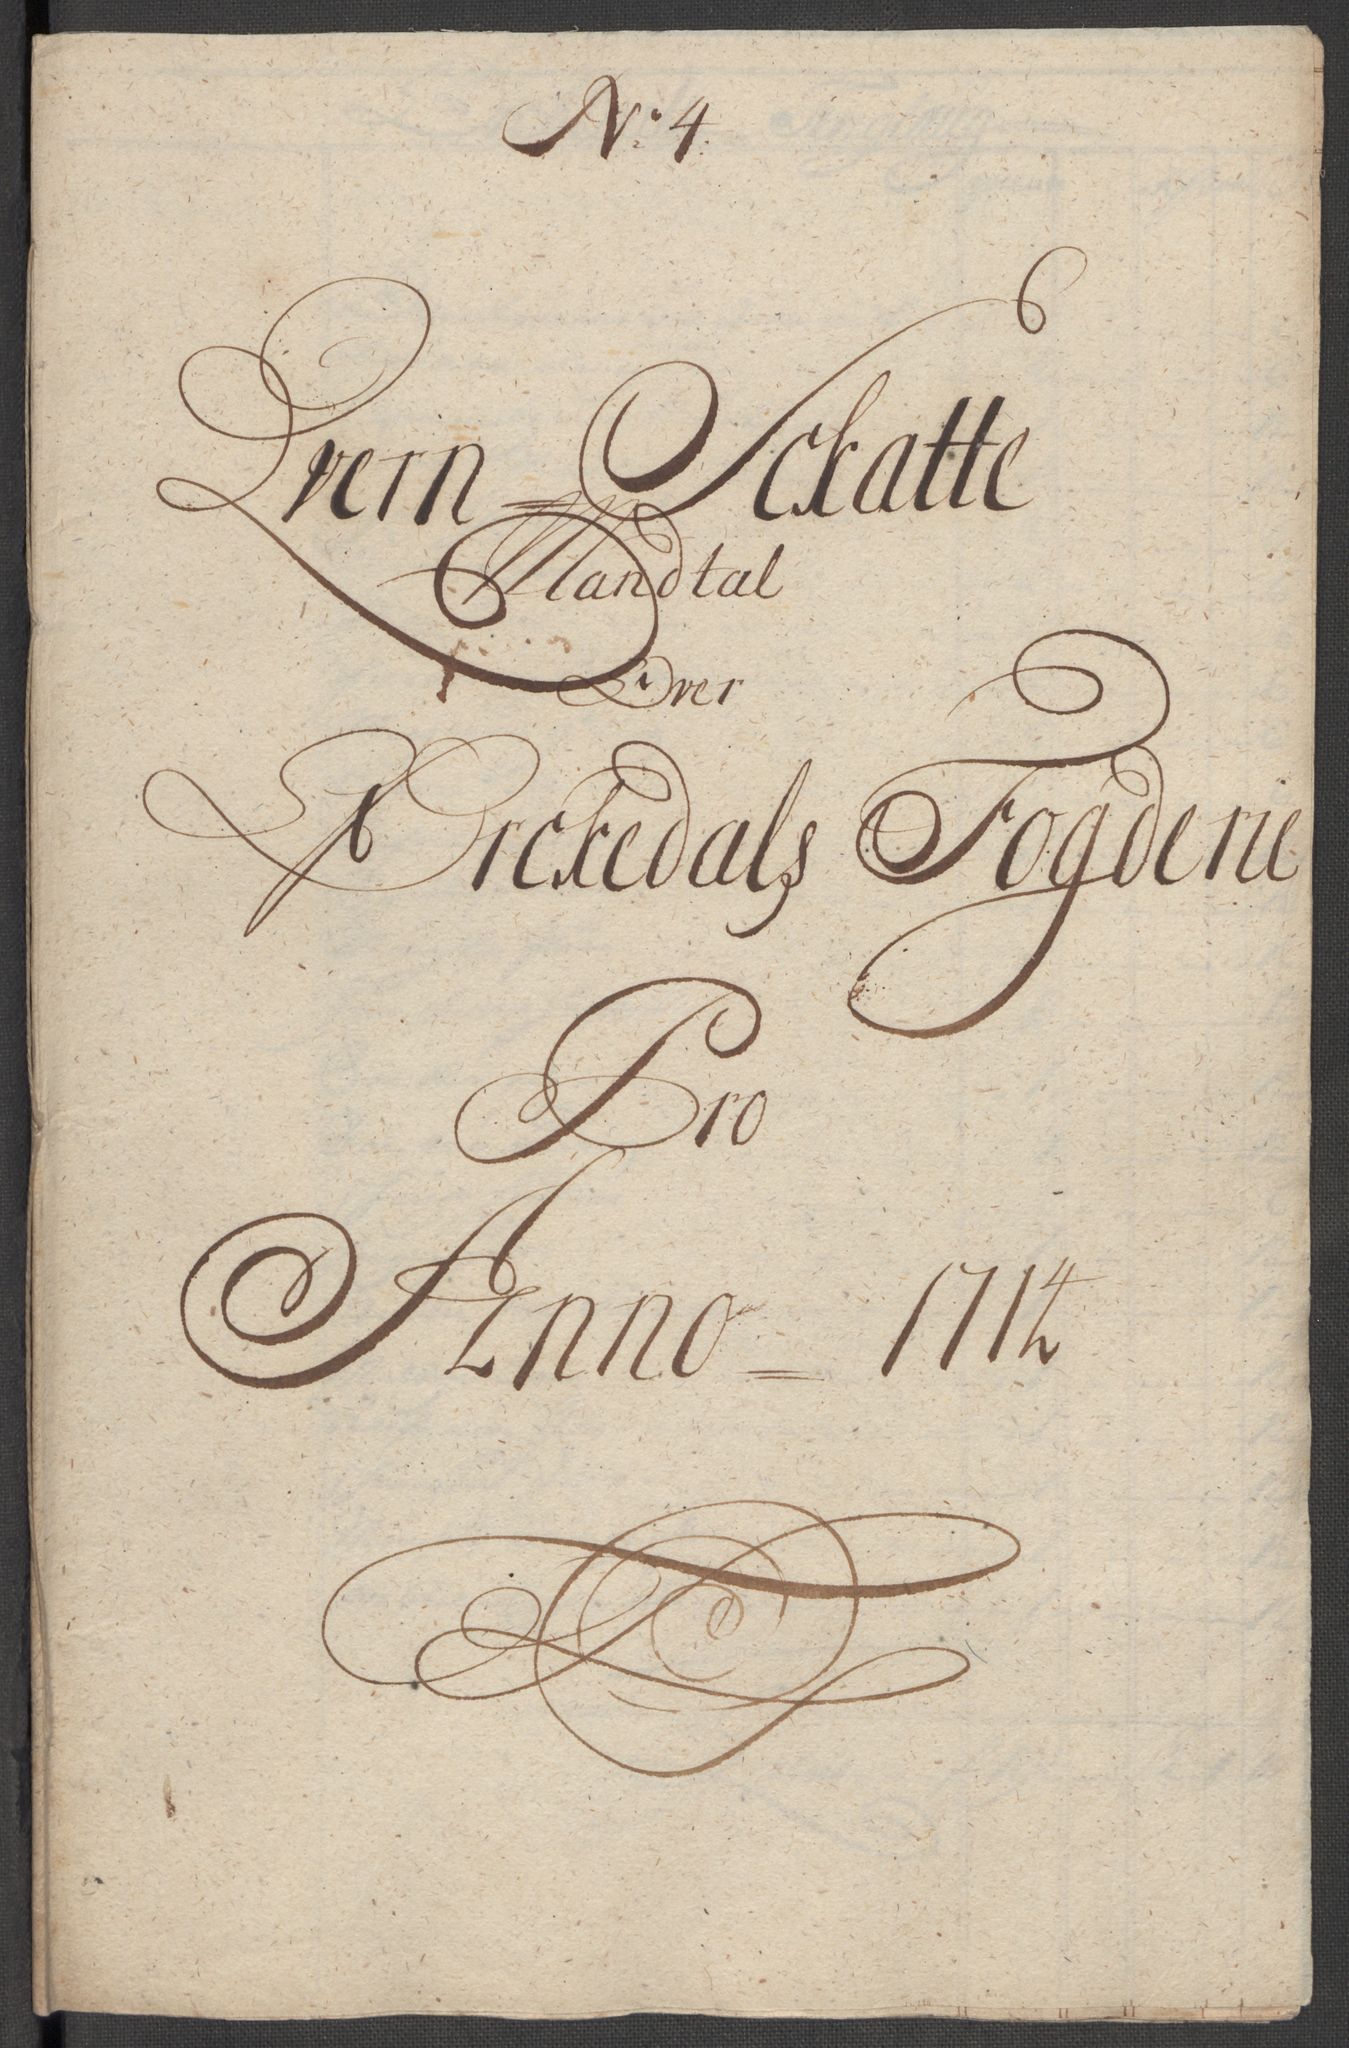 No 4.
Qvern Schatte
Mandtal
Over
Orckedals Fogderie
Pro
Anno = 1714